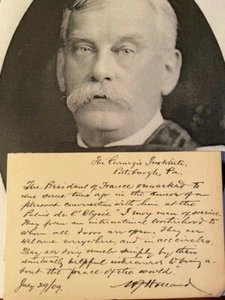 The Carnegie Institute,
Pittsburgh, Pa.
The President of France remarked to
me some time ago in the course of a
pleasant conversation with him at the
Palais de l'Elysée "I envy men of science.
They form an international brotherhood to
whom all doors are open. They are
welcome everywhere, and in all circles.
They are doing much simply by their
mutually helpful intercourse to bring a-
bout the peace of the world."
July 29/09. W.J. Holland